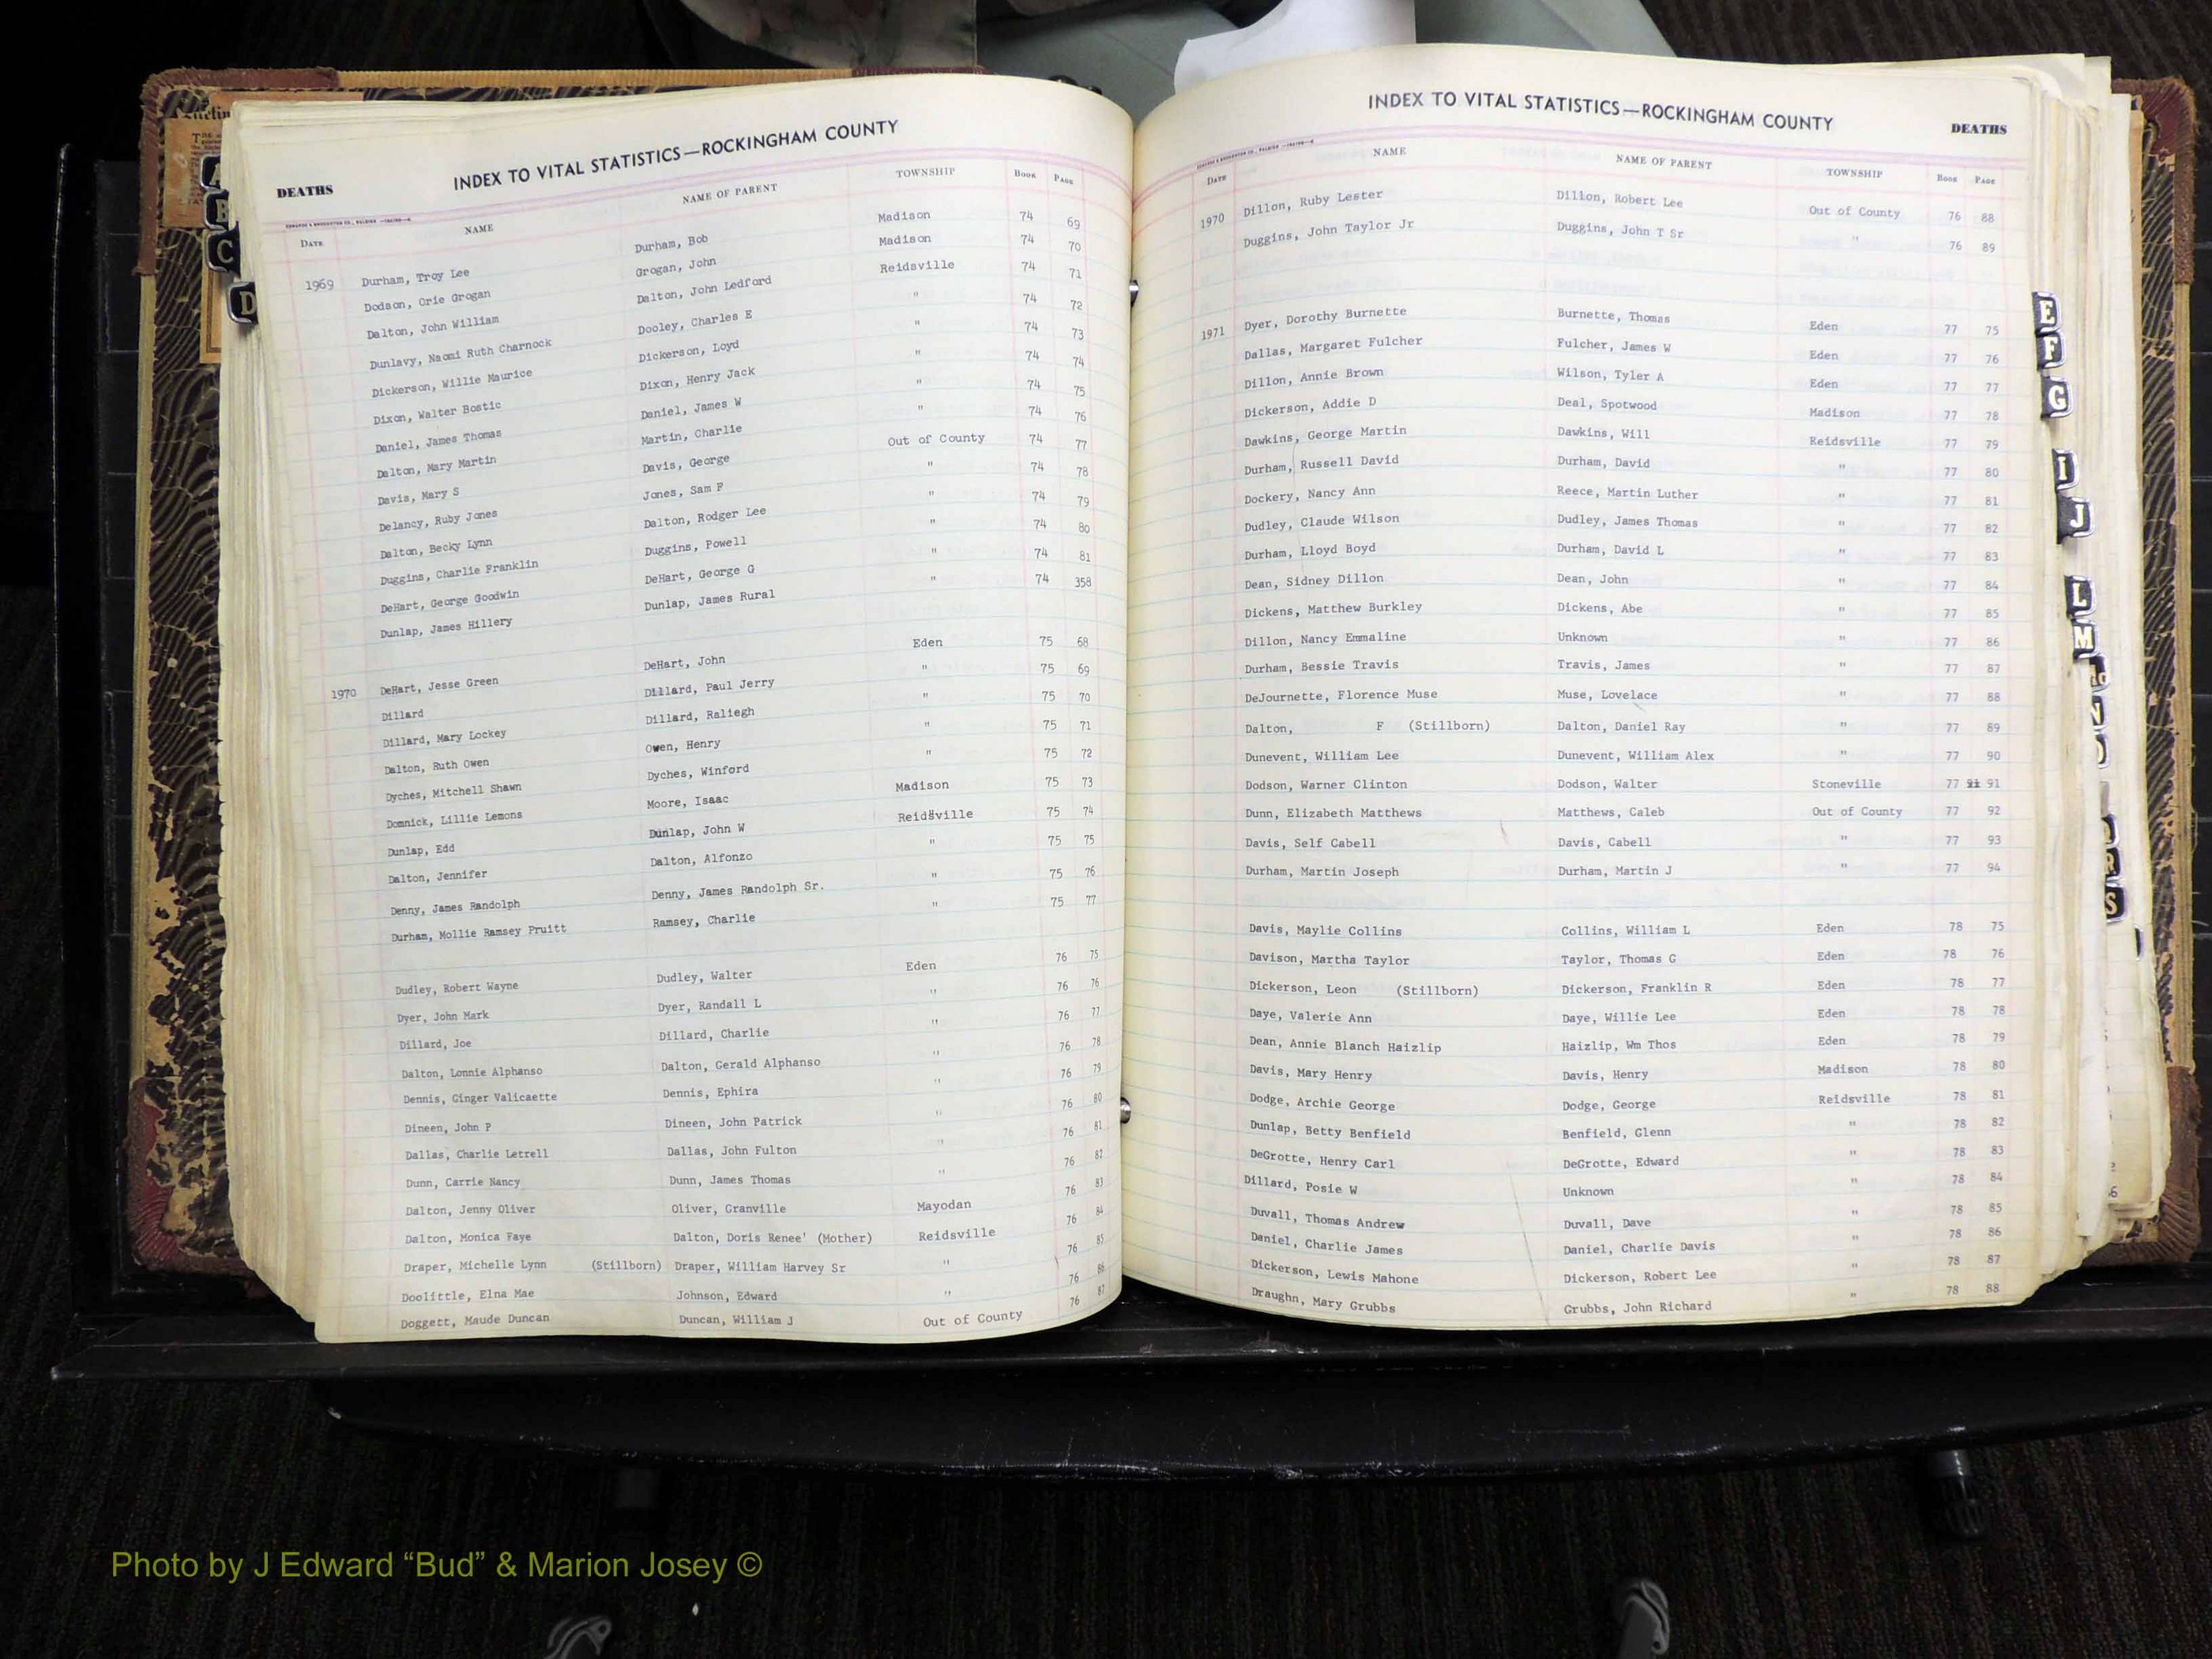 INDEX TO VITAL STATISTICS—ROCKINGHAM COUNTY
DEATHS
DATE NAME NAME OF PARENT TOWNSHIP BOOK PAGE
1969 Durham, Troy Lee Durham, Bob Madison 74 69
Dodson, Orie Grogan Grogan, John Madison 74 70
Dalton, John William Dalton, John Ledford Reidsville 74 71
Dunlavy, Naomi Ruth Charnock Dooley, Charles E " 74 72
Dickerson, Willie Maurice Dickerson, Loyd " 74 73
Dixon, Walter Bostic Dixon, Henry Jack " 74 74
Daniel, James Thomas Daniel, James W " 74 75
Dalton, Mary Martin Martin, Charlie " 74 76
Davis, Mary S Davis, George Out of County 74 77
Delancy, Ruby Jones Jones, Sam F " 74 78
Dalton, Becky Lynn Dalton, Rodger Lee " 74 79
Duggins, Charlie Franklin Duggins, Powell " 74 80
DeHart, George Goodwin DeHart, George G " 74 81
Dunlap, James Hillery Dunlap, James Rural " 74 358
1970 DeHart, Jesse Green DeHart, John Eden 75 68
Dillard Dillard, Paul Jerry " 75 69
Dillard, Mary Lockey Dillard, Raliegh " 75 70
Dalton, Ruth Owen Owen, Henry " 75 71
Dyches, Mitchell Shawn Dyches, Winford " 75 72
Domnick, Lillie Lemons Moore, Isaac Madison 75 73
Dunlap, Edd Dunlap, John W Reidsville 75 74
Dalton, Jennifer Dalton, Alfonzo " 75 75
Denny, James Randolph Denny, James Randolph Sr. " 75 76
Durham, Mollie Ramsey Pruitt Ramsey, Charlie " 75 77
Dudley, Robert Wayne Dudley, Walter Eden 76 75
Dyer, John Mark Dyer, Randall L " 76 76
Dillard, Joe Dillard, Charlie " 76 77
Dalton, Lonnie Alphanso Dalton, Gerald Alphanso " 76 78
Dennis, Ginger Valicaette Dennis, Ephira " 76 79
Dineen, John P Dineen, John Patrick " 76 80
Dallas, Charlie Letrell Dallas, John Fulton " 76 81
Dunn, Carrie Nancy Dunn, James Thomas " 76 82
Dalton, Jenny Oliver Oliver, Granville Mayodan 76 83
Dalton, Monica Faye Dalton, Doris Renee' (Mother) Reidsville 76 84
Draper, Michelle Lynn (Stillborn) Draper, William Harvey Sr " 76 85
Doolittle, Elna Mae Johnson, Edward " 76 86
Doggett, Maude Duncan Duncan, William J Out of County 76 87
INDEX TO VITAL STATISTICS—ROCKINGHAM COUNTY
DEATHS
DATE NAME NAME OF PARENT TOWNSHIP BOOK PAGE
1970 Dillon, Ruby Lester Dillon, Robert Lee Out of County 76 88
Duggins, John Taylor Jr Duggins, John T Sr " 76 89
1971 Dyer, Dorothy Burnette Burnette, Thomas Eden 77 75
Dallas, Margaret Fulcher Fulcher, James W Eden 77 76
Dillon, Annie Brown Wilson, Tyler A Eden 77 77
Dickerson, Addie D Deal, Spotwood Madison 77 78
Dawkins, George Martin Dawkins, Will Reidsville 77 79
Durham, Russell David Durham, David " 77 80
Dockery, Nancy Ann Reece, Martin Luther " 77 81
Dudley, Claude Wilson Dudley, James Thomas " 77 82
Durham, Lloyd Boyd Durham, David L " 77 83
Dean, Sidney Dillon Dean, John " 77 84
Dickens, Matthew Burkley Dickens, Abe " 77 85
Dillon, Nancy Emmaline Unknown " 77 86
Durham, Bessie Travis Travis, James " 77 87
DeJournette, Florence Muse Muse, Lovelace " 77 88
Dalton, F (Stillborn) Dalton, Daniel Ray " 77 89
Dunevent, William Lee Dunevent, William Alex " 77 90
Dodson, Warner Clinton Dodson, Walter Stoneville 77 91
Dunn, Elizabeth Matthews Matthews, Caleb Out of County 77 92
Davis, Self Cabell Davis, Cabell " 77 93
Durham, Martin Joseph Durham, Martin J " 77 94
Davis, Maylie Collins Collins, William L Eden 78 75
Davison, Martha Taylor Taylor, Thomas G Eden 78 76
Dickerson, Leon (Stillborn) Dickerson, Franklin R Eden 78 77
Daye, Valerie Ann Daye, Willie Lee Eden 78 78
Dean, Annie Blanch Haizlip Haizlip, Wm Thos Eden 78 79
Davis, Mary Henry Davis, Henry Madison 78 80
Dodge, Archie George Dodge, George Reidsville 78 81
Dunlap, Betty Benfield Benfield, Glenn " 78 82
DeGrotte, Henry Carl DeGrotte, Edward " 78 83
Dillard, Posie W Unknown " 78 84
Duvall, Thomas Andrew Duvall, Dave " 78 85
Daniel, Charlie James Daniel, Charlie Davis " 78 86
Dickerson, Lewis Mahone Dickerson, Robert Lee " 78 87
Draughn, Mary Grubbs Grubbs, John Richard " 78 88
A
B
C
D
E
F
G
I
J
L
M
R
S
Photo by J Edward “Bud” & Marion Josey ©